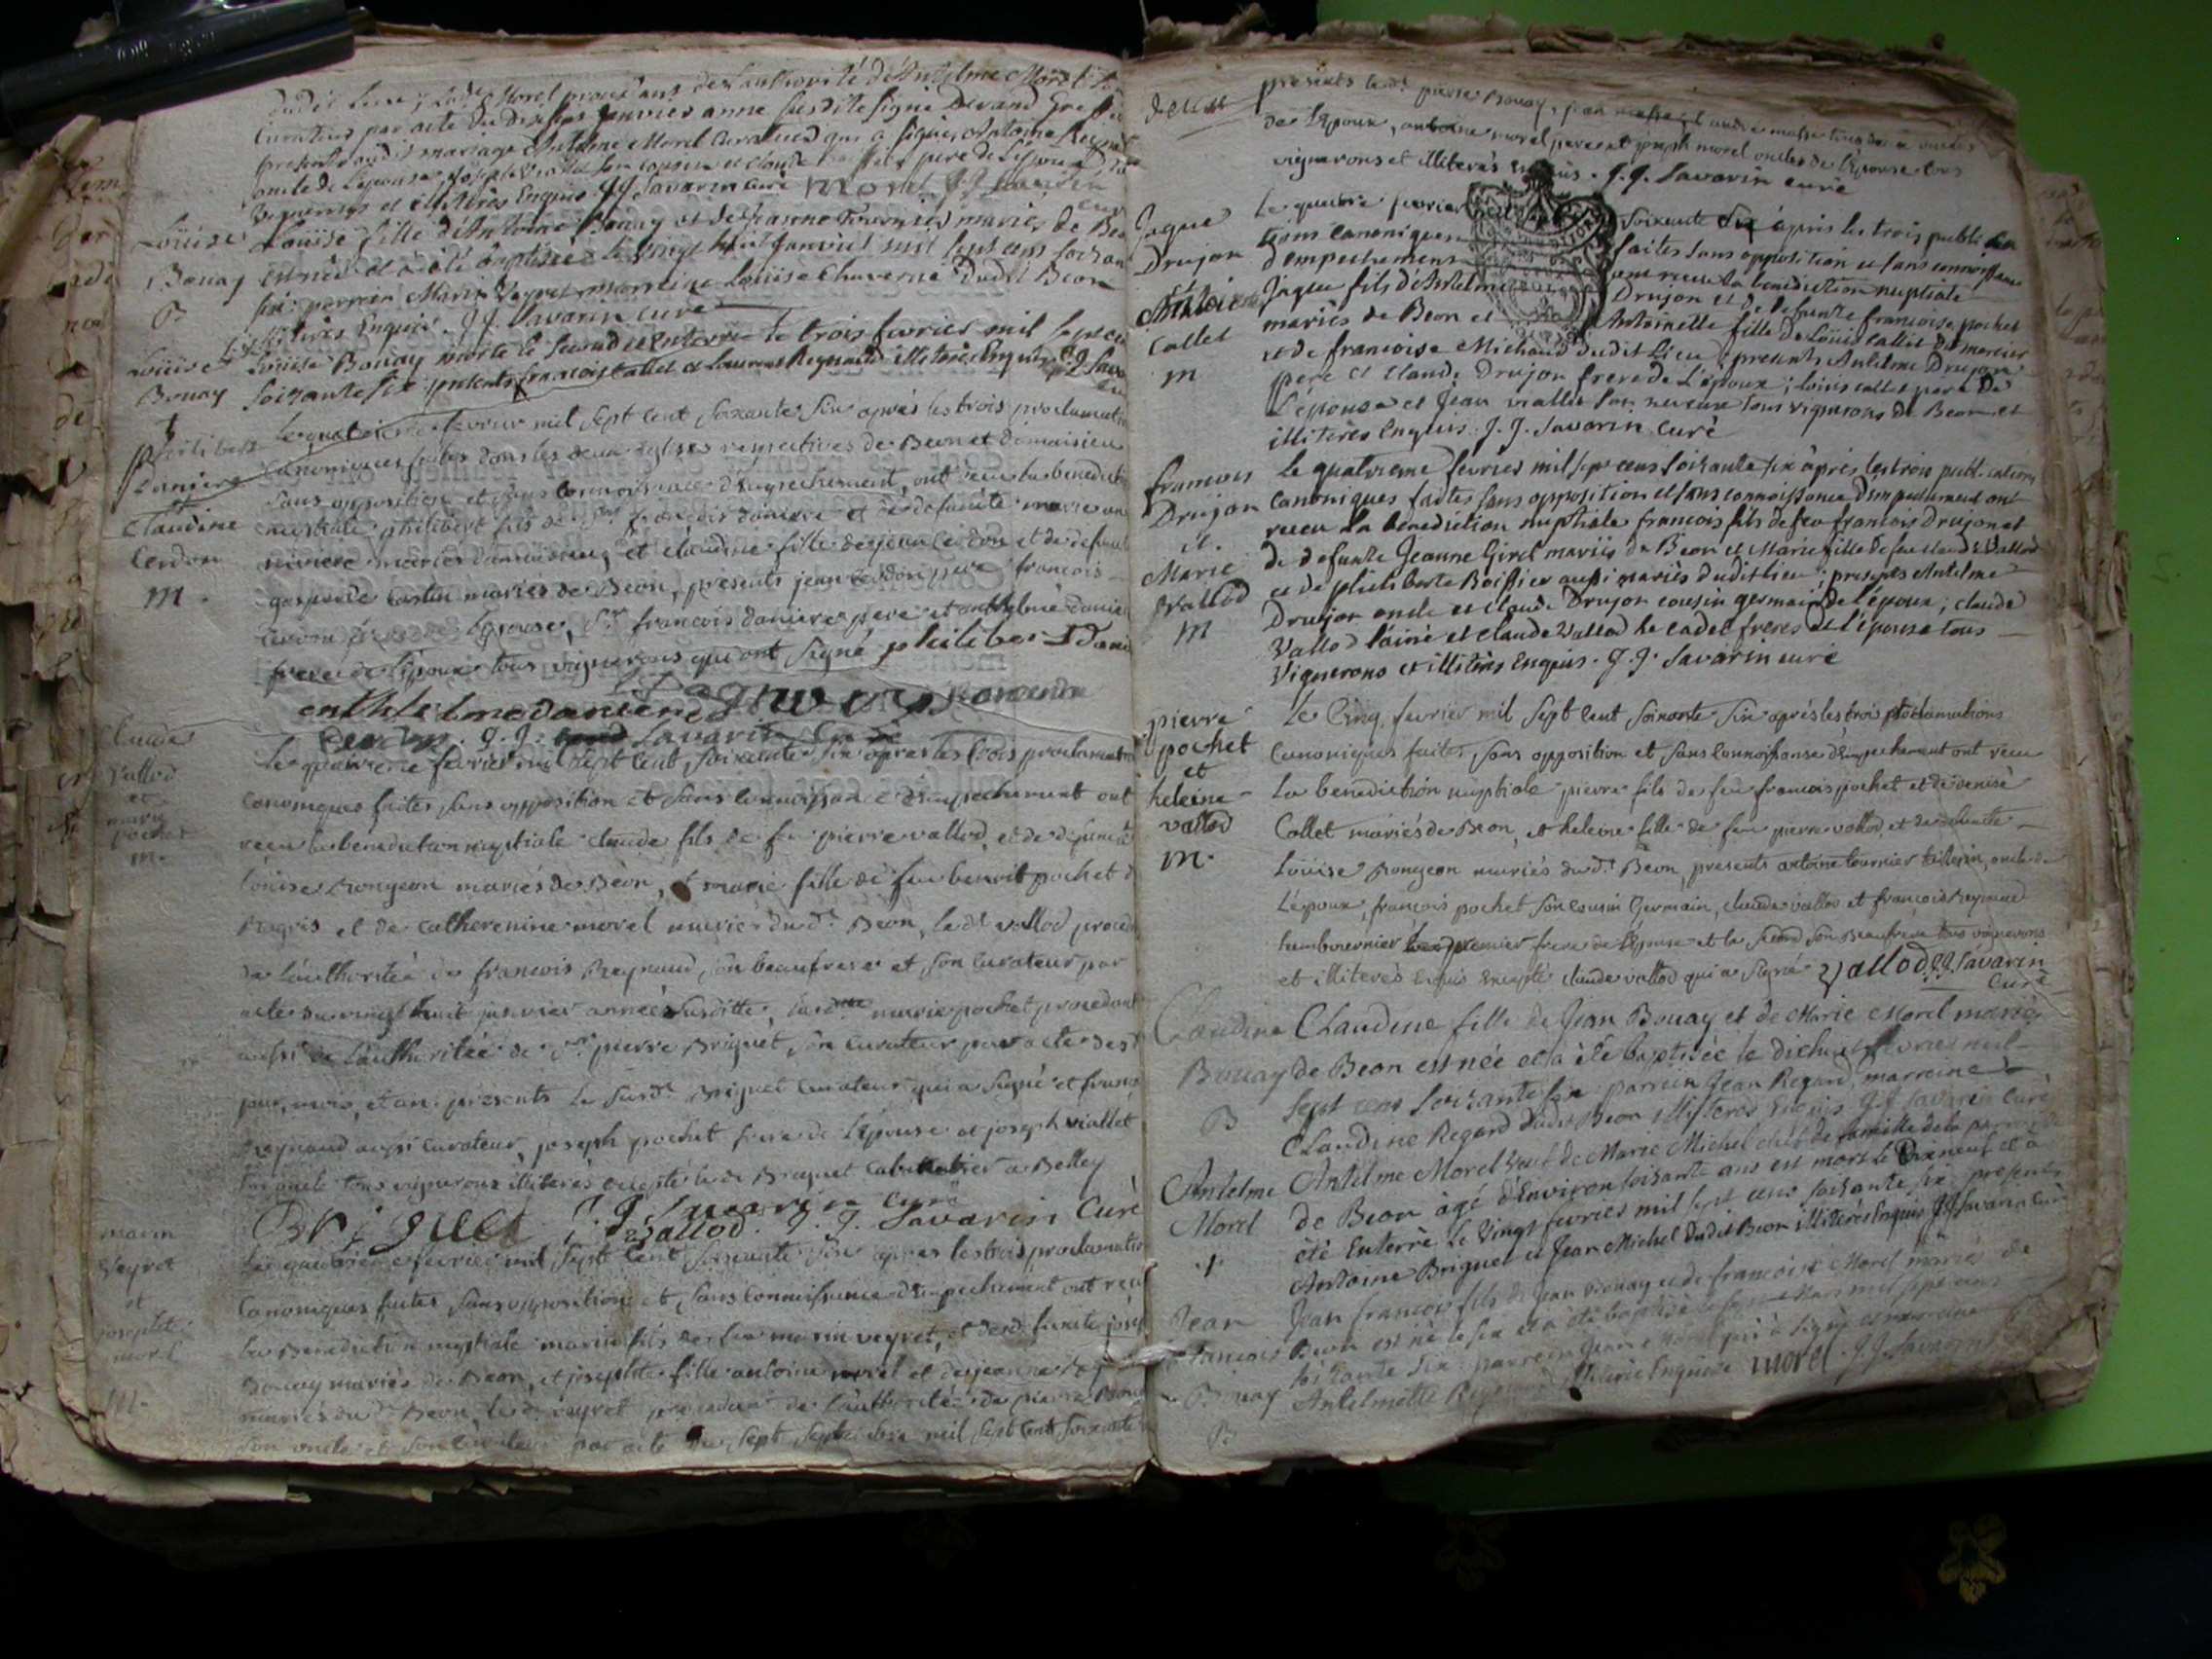 dudit lieu; Morel de l'authorité d'Antelme Morel
curateur par acte du janvier anne susditte signé Devand
presents audit mariage Antelme Morel curateur qui a signé, Antoine
oncle de l'epouse, joseph son cousin et claude pere de l'epoux
vignerons et illiterés Enquis J.J. Savarin curé morel J.J. Savarin
curé
Louise
Bouay
B.
Louise fille d'Antoine Bouay et de mariés de Beon
est née et a été baptisée le vingt huit janvier mil sept cens soixante
six: parrein Marin Veyret marreine Louise Chaverne dudit Beon
illitérés Enquis. J.J. Savarin curé
Louise
Bouay
†
Louise Bouay morte le second et enterrée le trois fevrier mil sept cens
soixante six presents francois Callet et Reynaud illiterés Enquis J.J. Savarin
philibert
Daniere
Claudine
Cerdon
m.
Le quatrieme fevrier mil sept cent soixante six aprés les trois proclamations
canoniques faites dans les deux eglises respectives de Beon et
sans opposition et sans connoissance d'empechement, ont receu la benediction
nuptiale philibert fils de Sr francois daniere et de defunte marie
mariés et claudine fille de jean Cerdon et de defunte
mariés de Beon, presents jean Cerdon pere francois
Cerdon frere de l'epouse, Sr francois daniere pere et anthelme daniere
frere de l'epoux tous vignerons qui ont signé philibert Dani
enthelme daniere
cerdon. J.J. Savarin Curé
Claude
Vallod
et
marie
pochet
m.
Le quatrieme fevrier mil sept cent soixante six apres les trois proclamations
canoniques faites sans opposition et sans connoissance d'empechement ont
receu la benediction nuptiale claude fils de feu pierre vallod, et de defuncte
louise Rongeon mariés de Beon, et marie fille de feu benoit pochet
et de catherenine morel mariés du dt Beon, le dt vallod procedant
de l'authoritée de francois Reynaud son beaufrere et son curateur par
acte du vingt huit janvier année susditte, marie pochet procedant
aussi de l'authoritée de Sr pierre Briguet son curateur par acte des
jour, mois, et an. presents le susdt Briguet curateur qui a signé et francois
Reynaud aussi curateur, joseph pochet frere de l'epouse et joseph viallet
son oncle tous vignerons illiterés excepté le dt Briguet cabaretier a Belley
Briguet J.J. Savarin Curé
Vallod. J.J. Savarin Curé
marin
Veyret
et
josephte
morel
m.
Le quatrieme fevrier mil sept cent soixante six apres les trois proclamations
canoniques faites sans opposition et sans connoissance d'empechement ont receu
la Benediction nuptiale marin fils de feu marin veyret, et de defuncte
Bouay mariés de Beon, et josephte fille antoine morel et de jeanne
mariés du dt Beon, le dt veyret procedant de l'authoritée de pierre Bouay
son oncle et son curateur par acte du sept septembre mil sept cent soixante
presents le dt pierre Bouay, jean
de l'epoux, antoine morel pere et joseph morel oncles de l'epouse tous
vignerons et illiterés enquis. J.J. Savarin curé
Jaque
Drujon
et
Antoinette
Callet
m
Le quatre fevrier mil sept cens soixante six aprés les trois publica
tions canoniques faites sans opposition et sans connoissance
d'empechement ont receu la benediction nuptiale
Jaque fils d'Antelme Drujon et de defunte francoise pochet
mariés de Beon et Antoinette fille de Louis Callet
et de francoise Michaud dudit Lieu; presents Antelme Drujon
pere et Claude Drujon frere de l'epoux; Louis callet pere de
l'epouse et Jean viallet son neveu tous vignerons de Beon et
illiterés Enquis. J.J. Savarin Curé
francois
Drujon
et.
Marie
Vallod
m
Le quatrieme fevrier mil sept cens soixante six aprés les trois publications
canoniques faites sans opposition et sans connoissance d'empechement ont
receu la benediction nuptiale francois fils de feu francois Drujon et
de defunte Jeanne Girel mariés de Beon et Marie fille de feu claude Vallod
et de philiberte Boissier aussi mariés dudit lieu; presents Antelme
Drujon oncle et claude Drujon cousin germain de l'epoux; claude
Vallod l'ainé et claude Vallod le cadet freres de l'epouse tous
Vignerons et illiterés Enquis. J.J. Savarin curé
pierre
pochet
et
heleine
vallod
m.
Le Cinq fevrier mil sept cent soixante six aprés les trois proclamations
canoniques faites, sans opposition et sans connoissance d'empechement ont receu
la benediction nuptiale pierre fils de feu francois pochet et de denise
Collet mariés de Beon, et heleine fille de feu pierre vallod, et de defuncte
Louise Rongeon mariés du dt Beon, presents antoine tournier oncle de
l'epoux, francois pochet son cousin Germain, claude vallod et francois Reynaud
premier frere de l'epouse et le second son Beaufrere tous vignerons
et illiterés enquis excepté claude vallod qui a signé Vallod J.J. Savarin
Curé
Claudine
Bouay
B
Claudine fille de Jean Bouay et de Marie Morel mariés
de Beon est née et a été baptisée le dixhuit fevrier mil
sept cens soixante six: parrein Jean Regard, marreine
Claudine Regard dudit Beon illyterés Enquis J.J. Savarin Curé
Antelme
Morel
†
Antelme Morel veuf de Marie Michel chef de famille de la paroisse
de Beon agé d'Environ soixante ans est mort le Dixneuf et a
été Enterré le vingt fevrier mil sept cens soixante six: presents
Antoine Briguet et Jean Michel dudit Beon illiterés Enquis J.J. Savarin Curé
Jean
francois
Bouay
B
Jean francois fils de Jean Bouay et de francoise Morel mariés de
Beon est né le six et a été baptisé le mars mil sept cens
soixante six: parrein Jean Morel qui a signé et marreine
Antelmette illiterée Enquise morel. J.J. Savarin